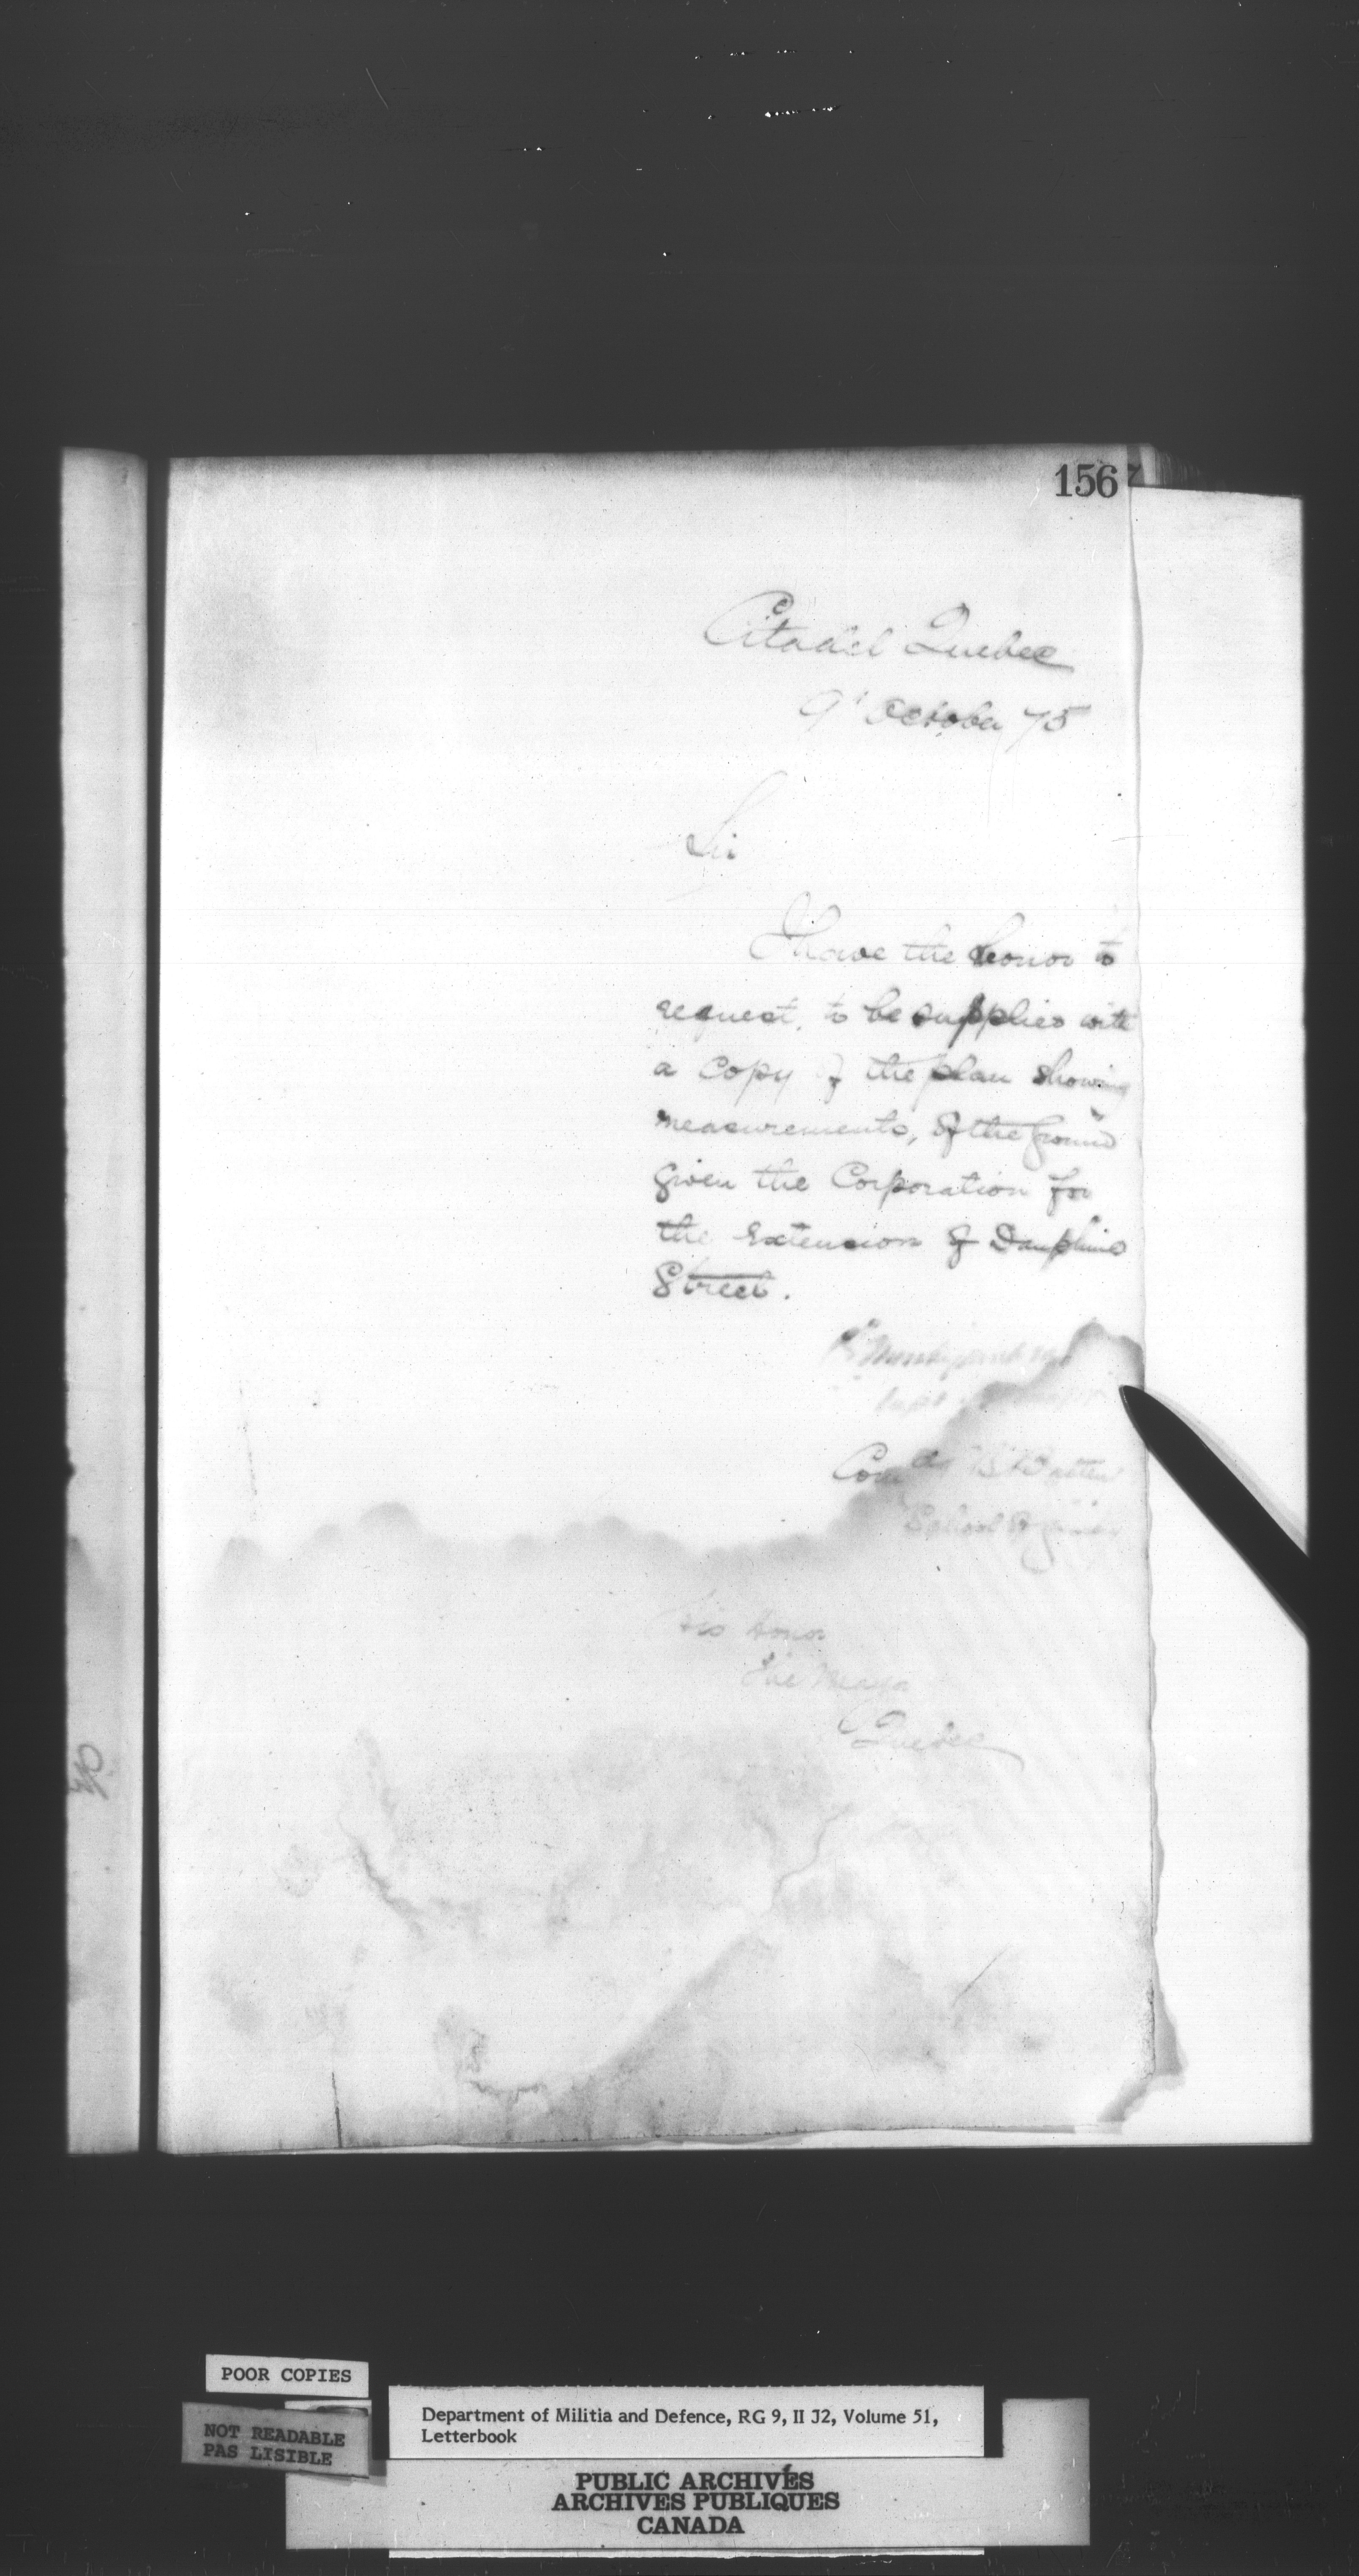 156
Citadel Quebec
9th October 75
Sir
I have the honor to
request, to be supplied with
a copy of the plan showing
measurements, of the ground
given the Corporation for
the extension of Dauphine
Street.
Comdg "B" Battery
School Gunnery
His Honor
The Mayor
Quebec
POOR COPIES
NOT READABLE
PAS LISIBLE
Department of Militia and Defence, RG 9, II J2, Volume 51,
Letterbook
PUBLIC ARCHIVES
ARCHIVES PUBLIQUES
CANADA